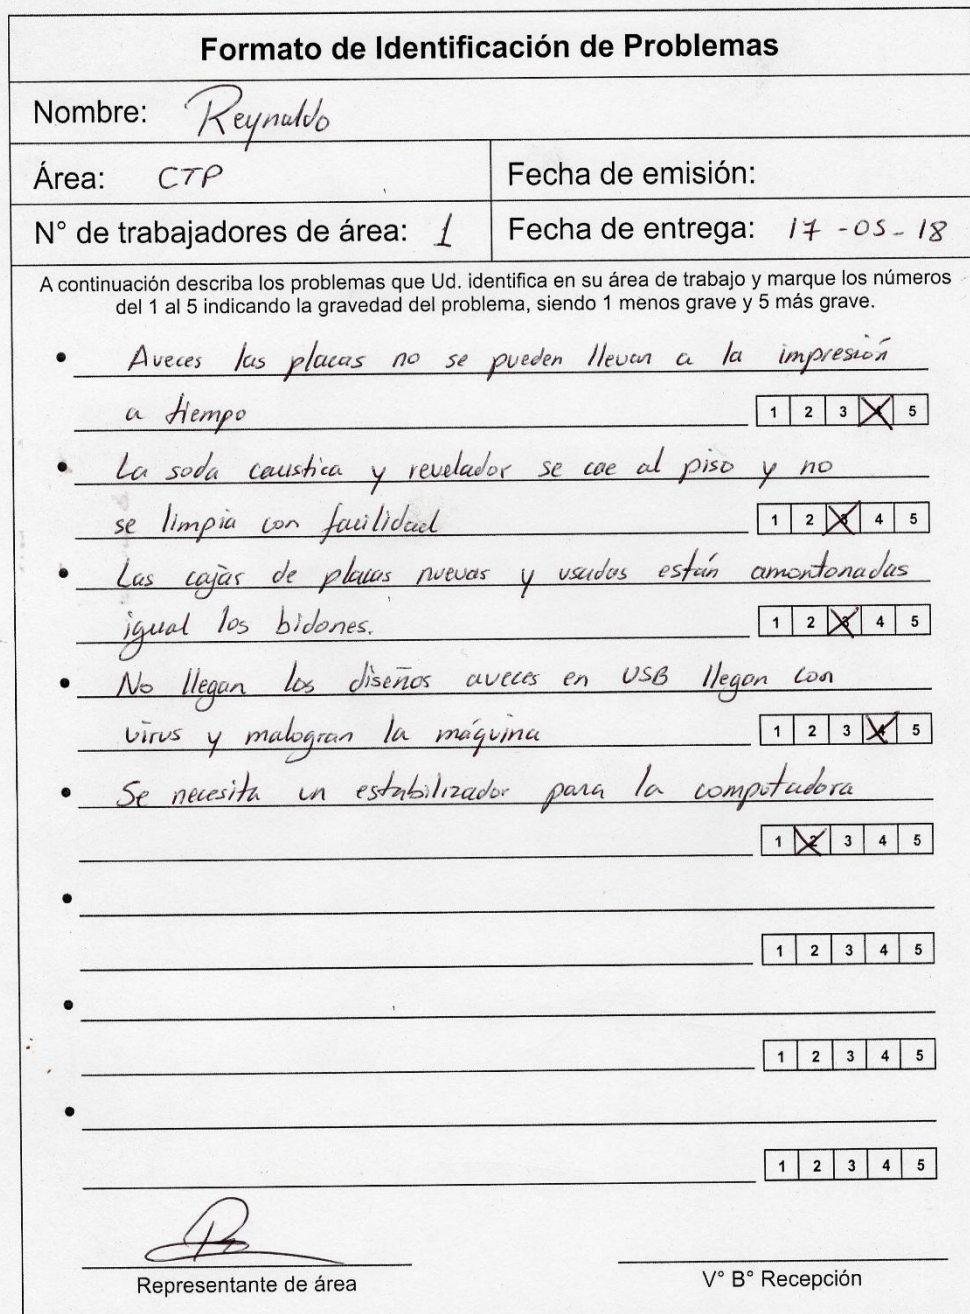 Formato de Identificación de Problemas
Nombre: Reynaldo
Área: CTP
Fecha de emisión:
N° de trabajadores de área: 1
Fecha de entrega: 17-05-18
A continuación describa los problemas que Ud. identifica en su área de trabajo y marque los números
del 1 al 5 indicando la gravedad del problema, siendo 1 menos grave y 5 más grave.
• Aveces las placas no se pueden llevan a la impresión
a tiempo 1 2 3 4 5
• La soda caustica y revelador se cae al piso y no
se limpia con facilidad 1 2 3 4 5
• Las cajas de placas nuevas y usadas están amontonadas
igual los bidones. 1 2 3 4 5
• No llegan los diseños aveces en USB llegan con
virus y malogran la máquina 1 2 3 4 5
• Se necesita un estabilizador para la computadora
1 2 3 4 5
•
1 2 3 4 5
•
1 2 3 4 5
•
1 2 3 4 5
Representante de área
V° B° Recepción